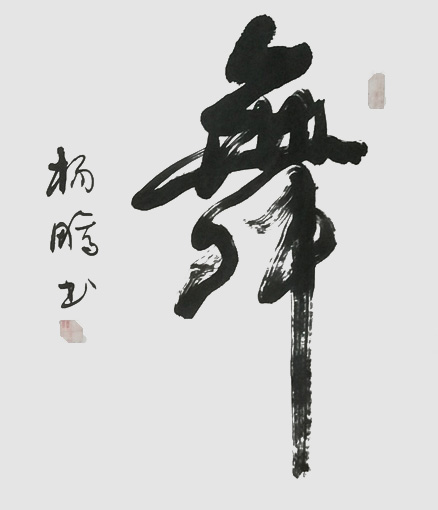 舞
杨鹏书